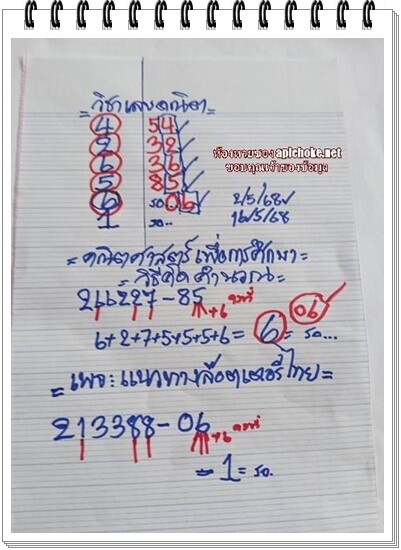 = วิชาเลขคณิต =
4 54
2 32
6 36
5 85
6 รอ 06 2/5/68
1 รอ... 16/5/68
ห้องหวยซอง aplchoke.net
ขอบคุณเจ้าของข้อมูล
= คณิตศาสตร์เพื่อการศึกษา =
= วิธีคิดคำนวณ =
216227-85 +6 คงที่
6+2+7+5+5+5+6= 6 = รอ... 06
= เพจ: แนวทางล็อตเตอรี่ไทย =
213388-06 +6 คงที่
= 1 = รอ.